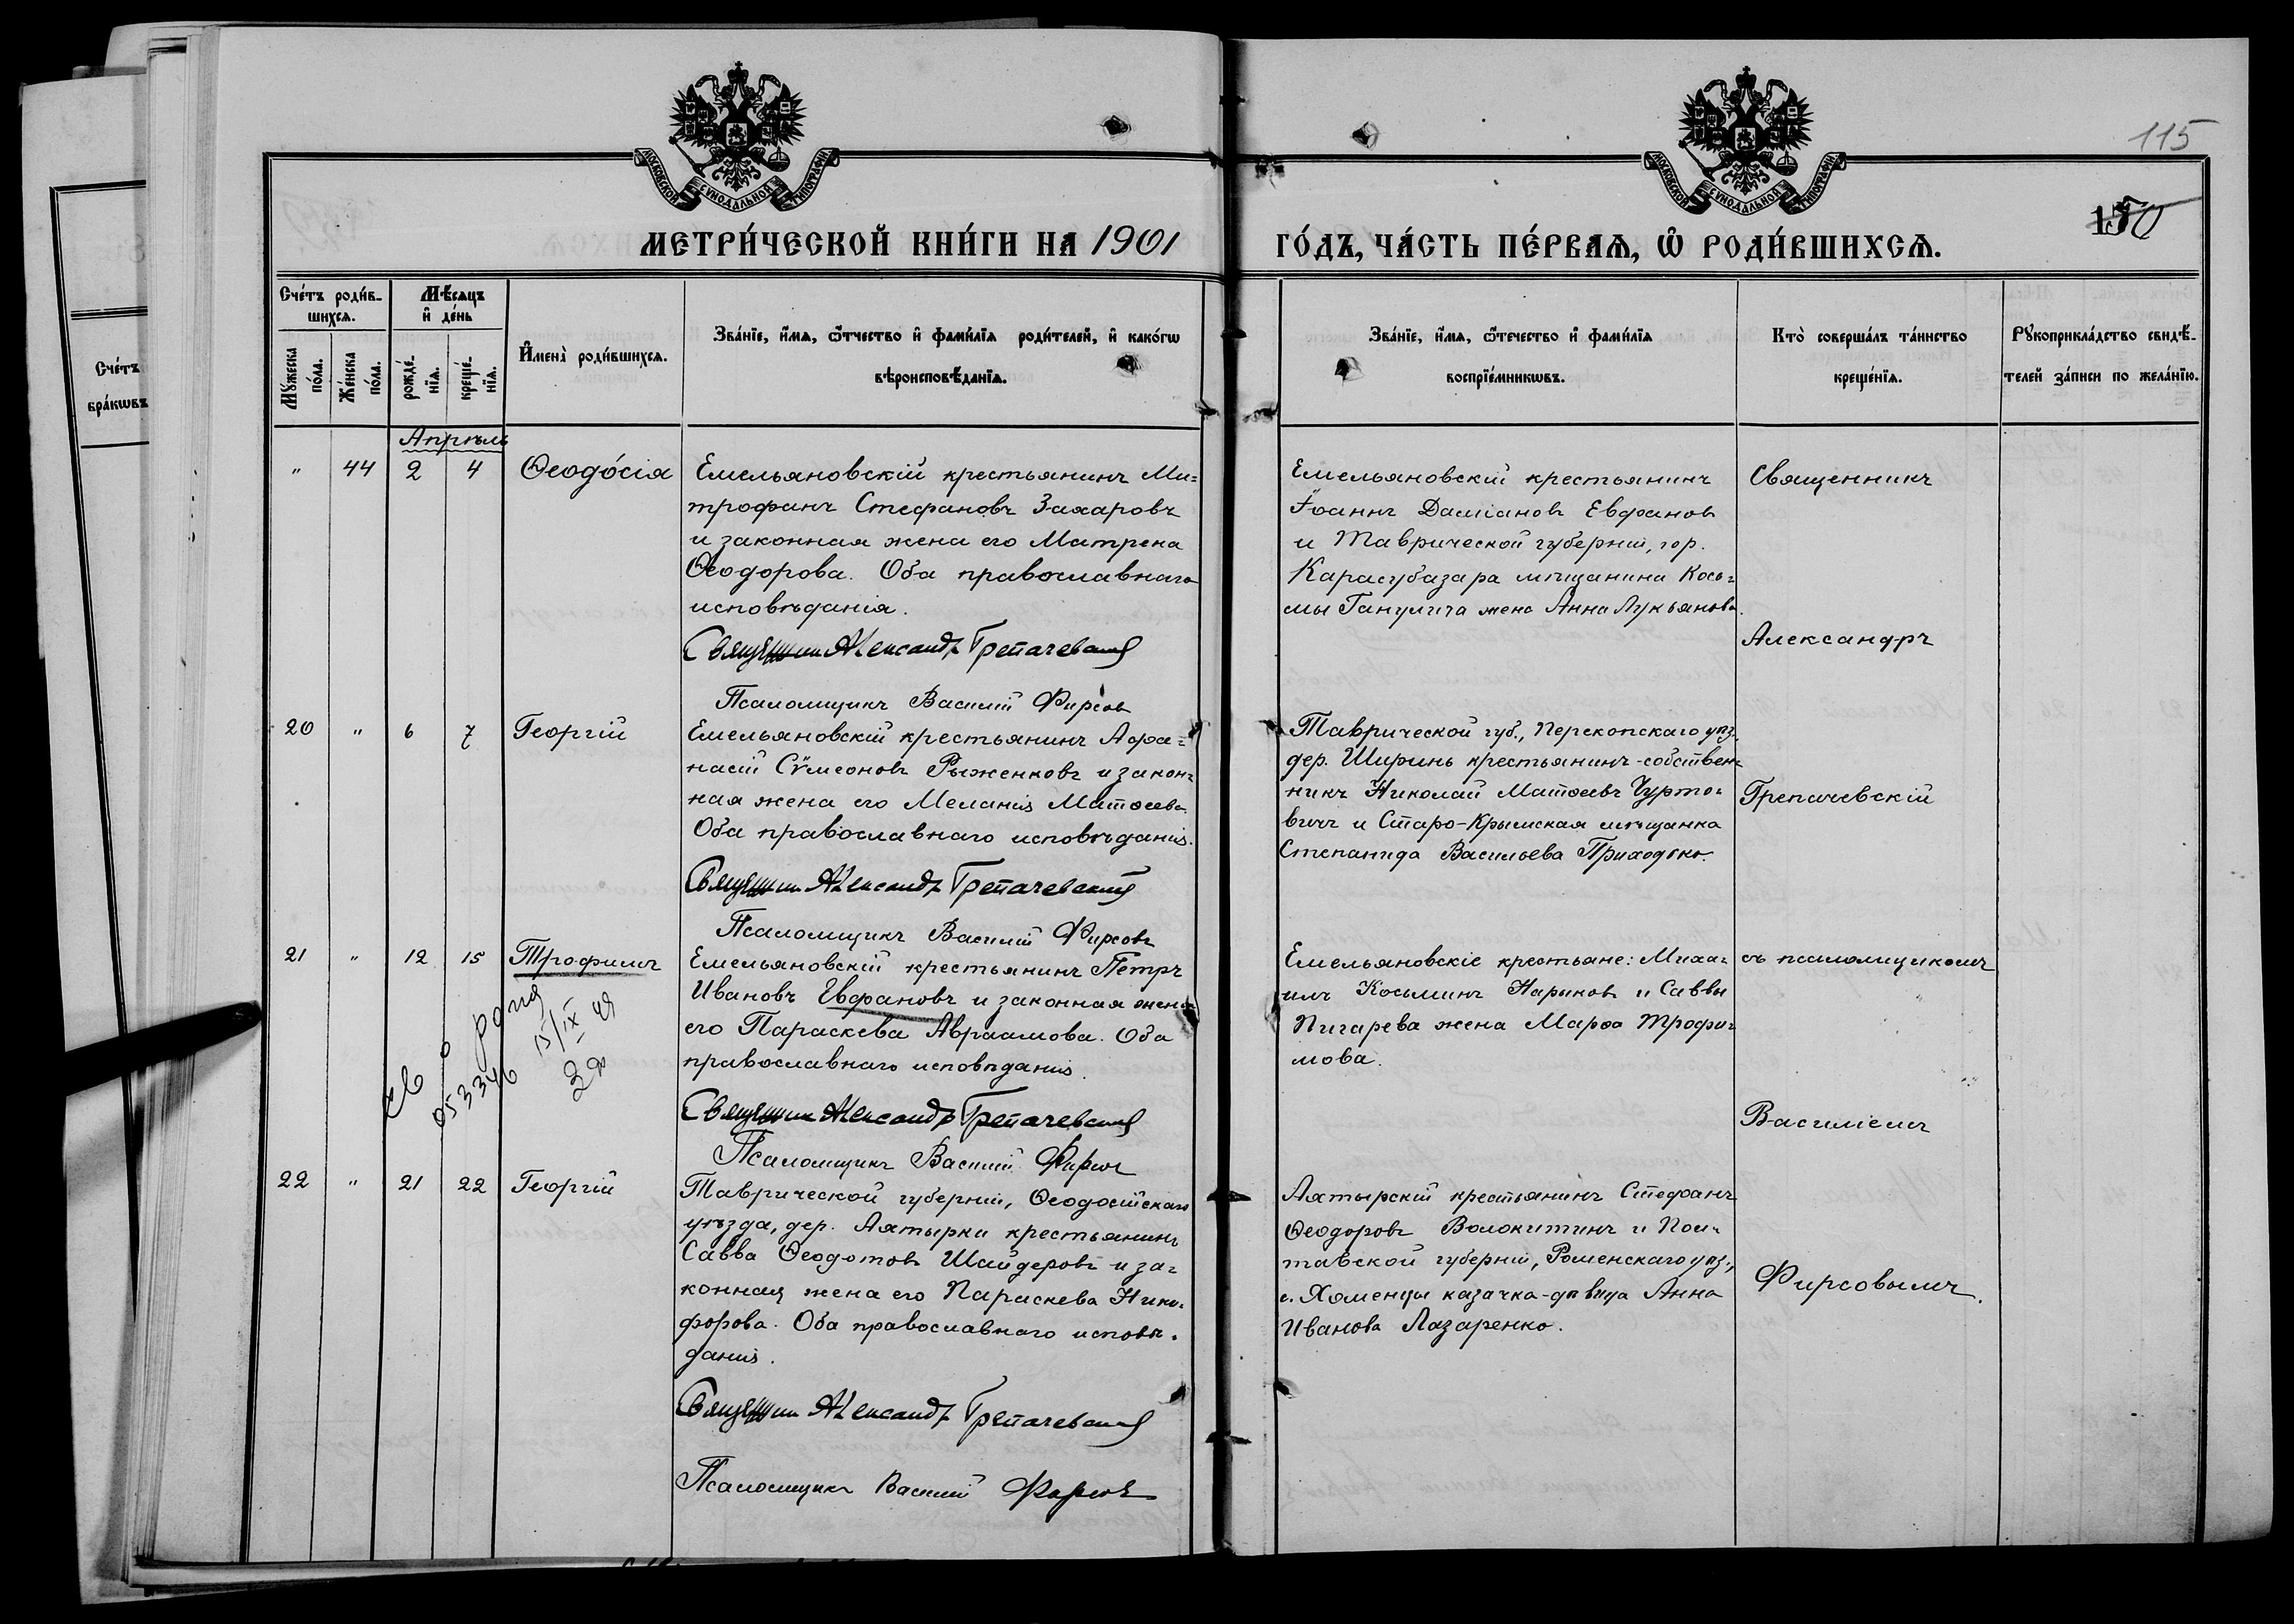 115
150
МОСКОВСКОЙ СѴНОДАЛЬНОЙ ТИПОГРАФІИ
МОСКОВСКОЙ СѴНОДАЛЬНОЙ ТИПОГРАФІИ
МЕТРИ́ЧЕСКОЙ КНИ́ГИ НА 1901
ГО́ДЪ, ЧА́СТЬ ПЕ́РВАЯ, Ѡ҆ РОДИ́ВШИХСѦ.
Счéтъ
брáкѡвъ
Счéтъ роди́в-
шихсѧ.
Мꙋ́жеска
пóла.
Же́нска
пóла.
Мѣ́сѧцъ
и҆ де́нь
рожде́-
нїѧ.
креще́-
нїѧ.
И҆мена̀ роди́вшихсѧ.
Звáнїе, и҆́мѧ, ѻ҆́тчество и҆ фами́лїѧ роди́телей, и҆ какóгѡ
вѣроисповѣ́данїѧ.
Звáнїе, и҆́мѧ, ѻ҆́течество и҆ фами́лїѧ
воспрїе́мникѡвъ.
Ктò совершáлъ тáинство
креще́нїѧ.
Рꙋкоприклáдство свидѣ́-
телей зáписи по желáнїю.
Апрѣль
" 44 2 4 Ѳеодо́сія
Емельяновскій крестьянинъ Ми=
трофанъ Стефановъ Захаровъ
и законная жена его Матрена
Ѳеодорова. Оба православнаго
исповѣданія.
Священник Александр Грепачевский
Псаломщикъ Василій Фирсовъ
Емельяновскій крестьянинъ
Іоаннъ Даміановъ Евфановъ
и Таврической губерніи, гор.
Карасубазара мѣщанина Кось=
мы Ганулича жена Анна Лукьянова.
20 " 6 7 Георгій
Емельяновскій крестьянинъ Афа=
насій Сѵмеоновъ Рыженковъ и закон=
ная жена его Меланія Матѳеева.
Оба православнаго исповѣданія.
Священник Александр Грепачевский
Псаломщикъ Василій Фирсовъ
Таврической губ., Перекопскаго уѣз.
дер. Ширинь крестьянинъ-собствен=
никъ Николай Матѳеевъ Чурто=
вичъ и Старо-Крымская мѣщанка
Степанида Васильева Приходько.
21 " 12 15 Трофимъ
Емельяновскій крестьянинъ Петръ
Ивановъ Евфановъ и законная жена
его Параскева Авраамова. Оба
православнаго исповѣданія.
Священник Александр Грепачевский
Псаломщикъ Василій Фирсовъ
Емельяновскіе крестьяне: Миха=
илъ Косьминъ Нарыковъ и Саввы
Пигарева жена Марѳа Трофи=
мова.
св о рожд
053346 15/IX 49
22 " 21 22 Георгій
Таврической губерніи, Ѳеодосійскаго
уѣзда, дер. Ахтырки крестьянинъ
Савва Ѳеодотовъ Шайдеровъ и за=
конная жена его Параскева Ники=
форова. Оба православнаго исповѣ=
данія.
Священник Александр Грепачевский
Псаломщикъ Василій Фирсовъ
Ахтырскій крестьянинъ Стефанъ
Ѳеодоровъ Волокитинъ и Пол=
тавской губерніи, Роменскаго уѣз.,
с. Хоменцы казачка-дѣвица Анна
Иванова Лазаренко.
Священникъ
Александръ
Грепачевскій
съ псаломщикомъ
Василіемъ
Фирсовымъ.